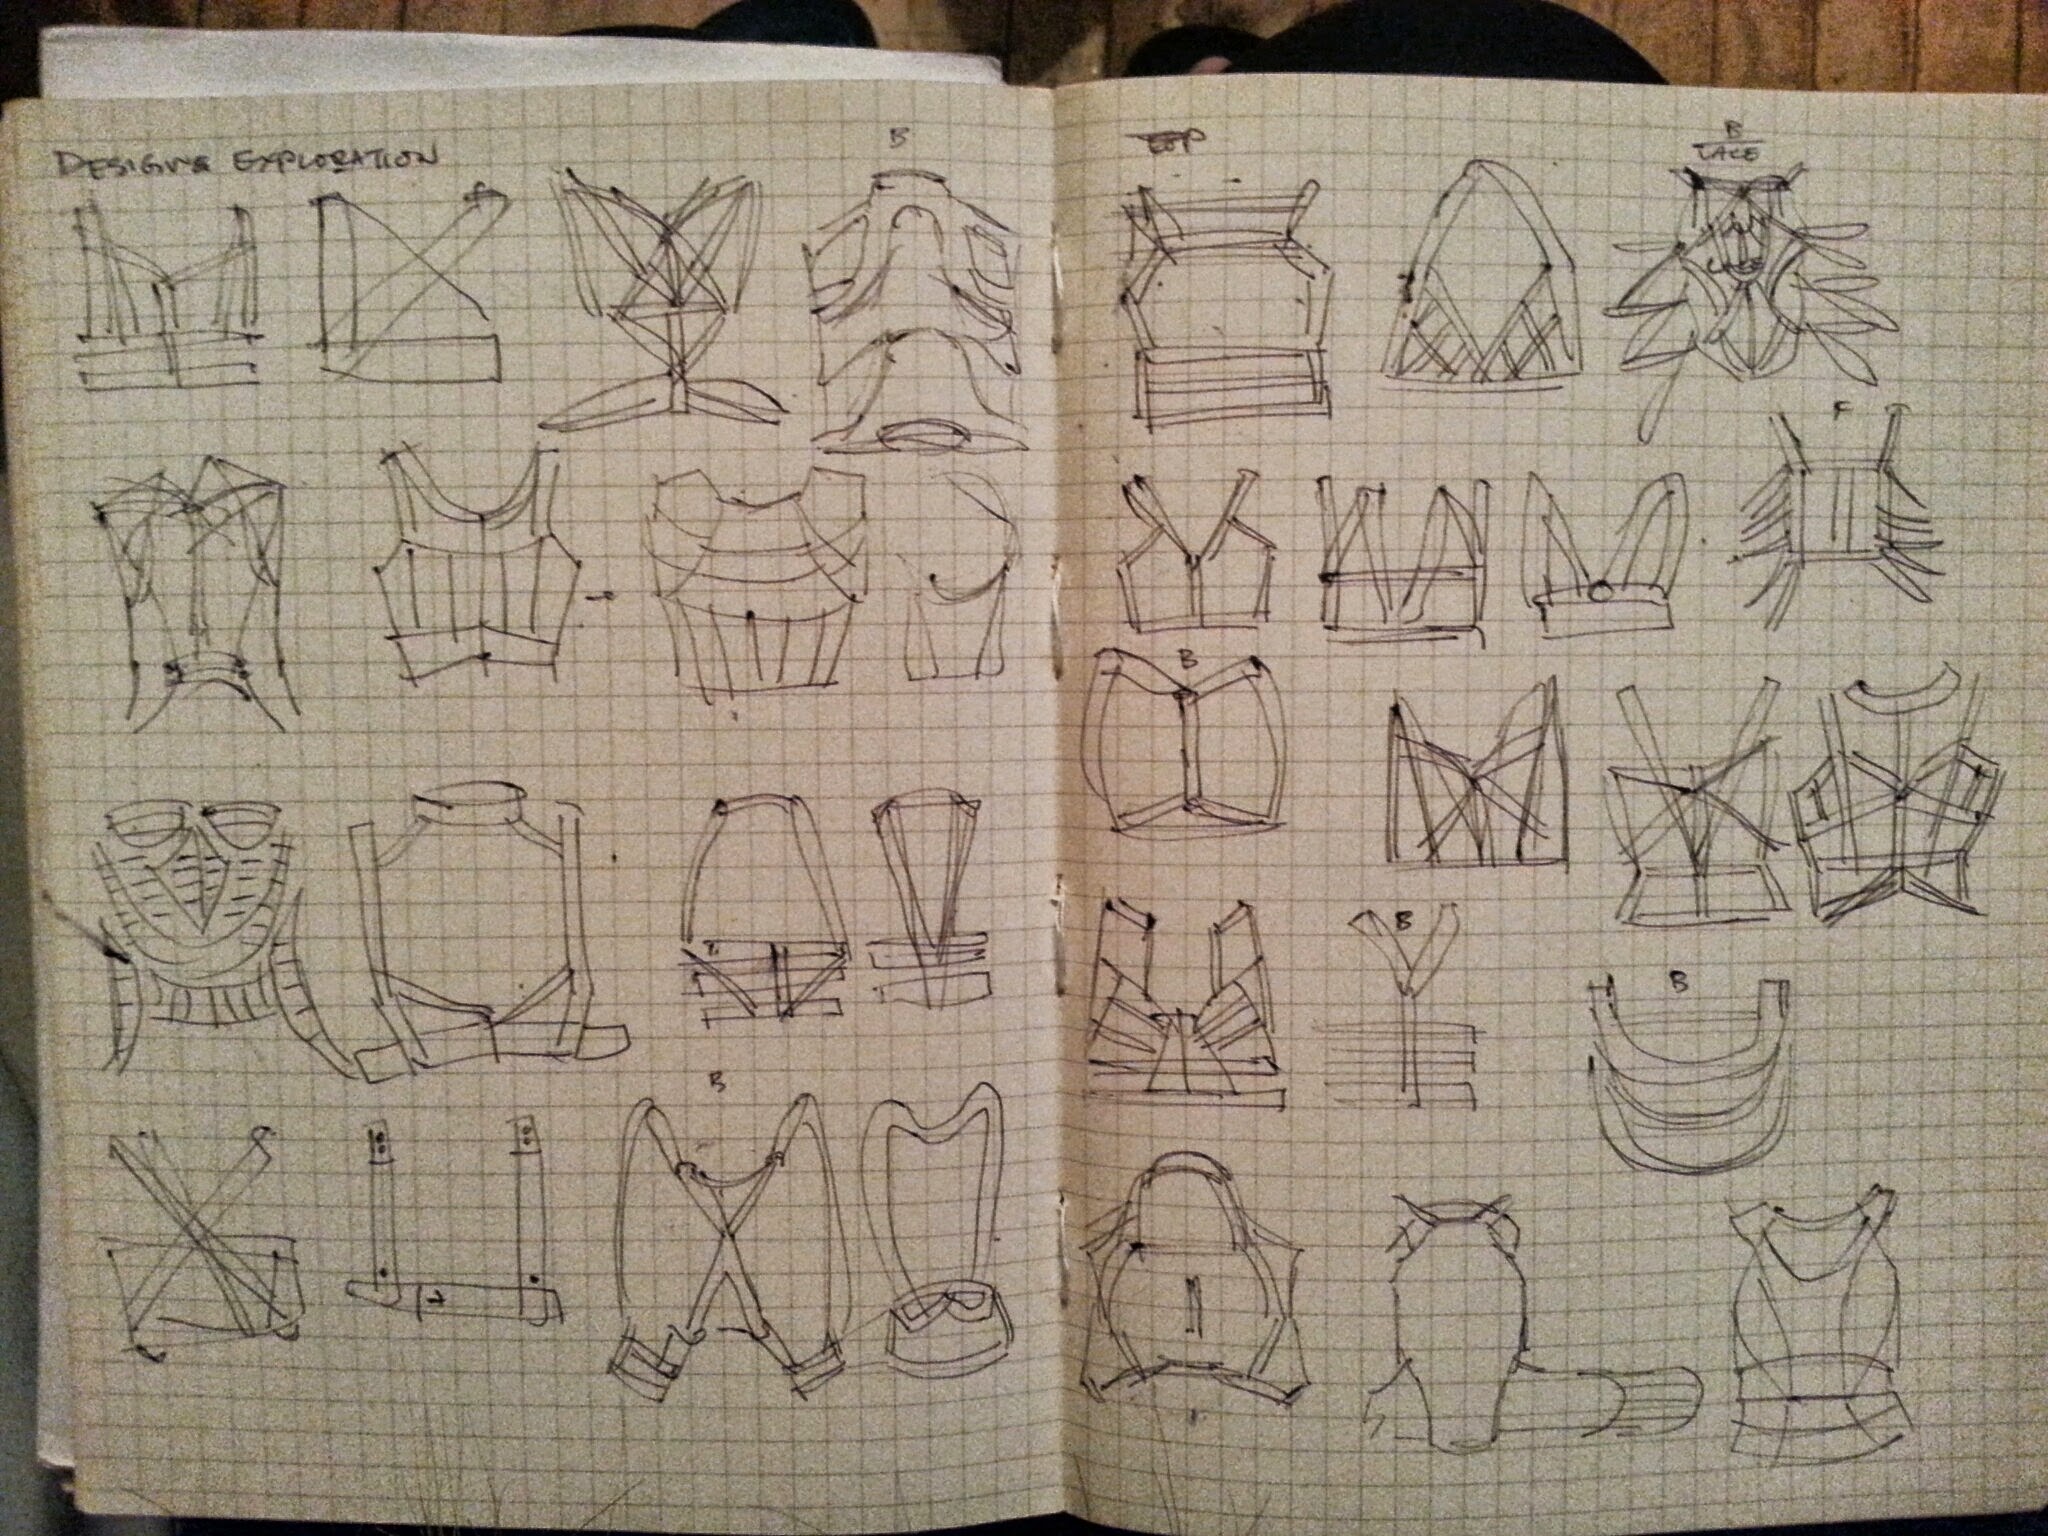 DESIGN EXPLORATION
B
B
LACE
F
B
B
B
B